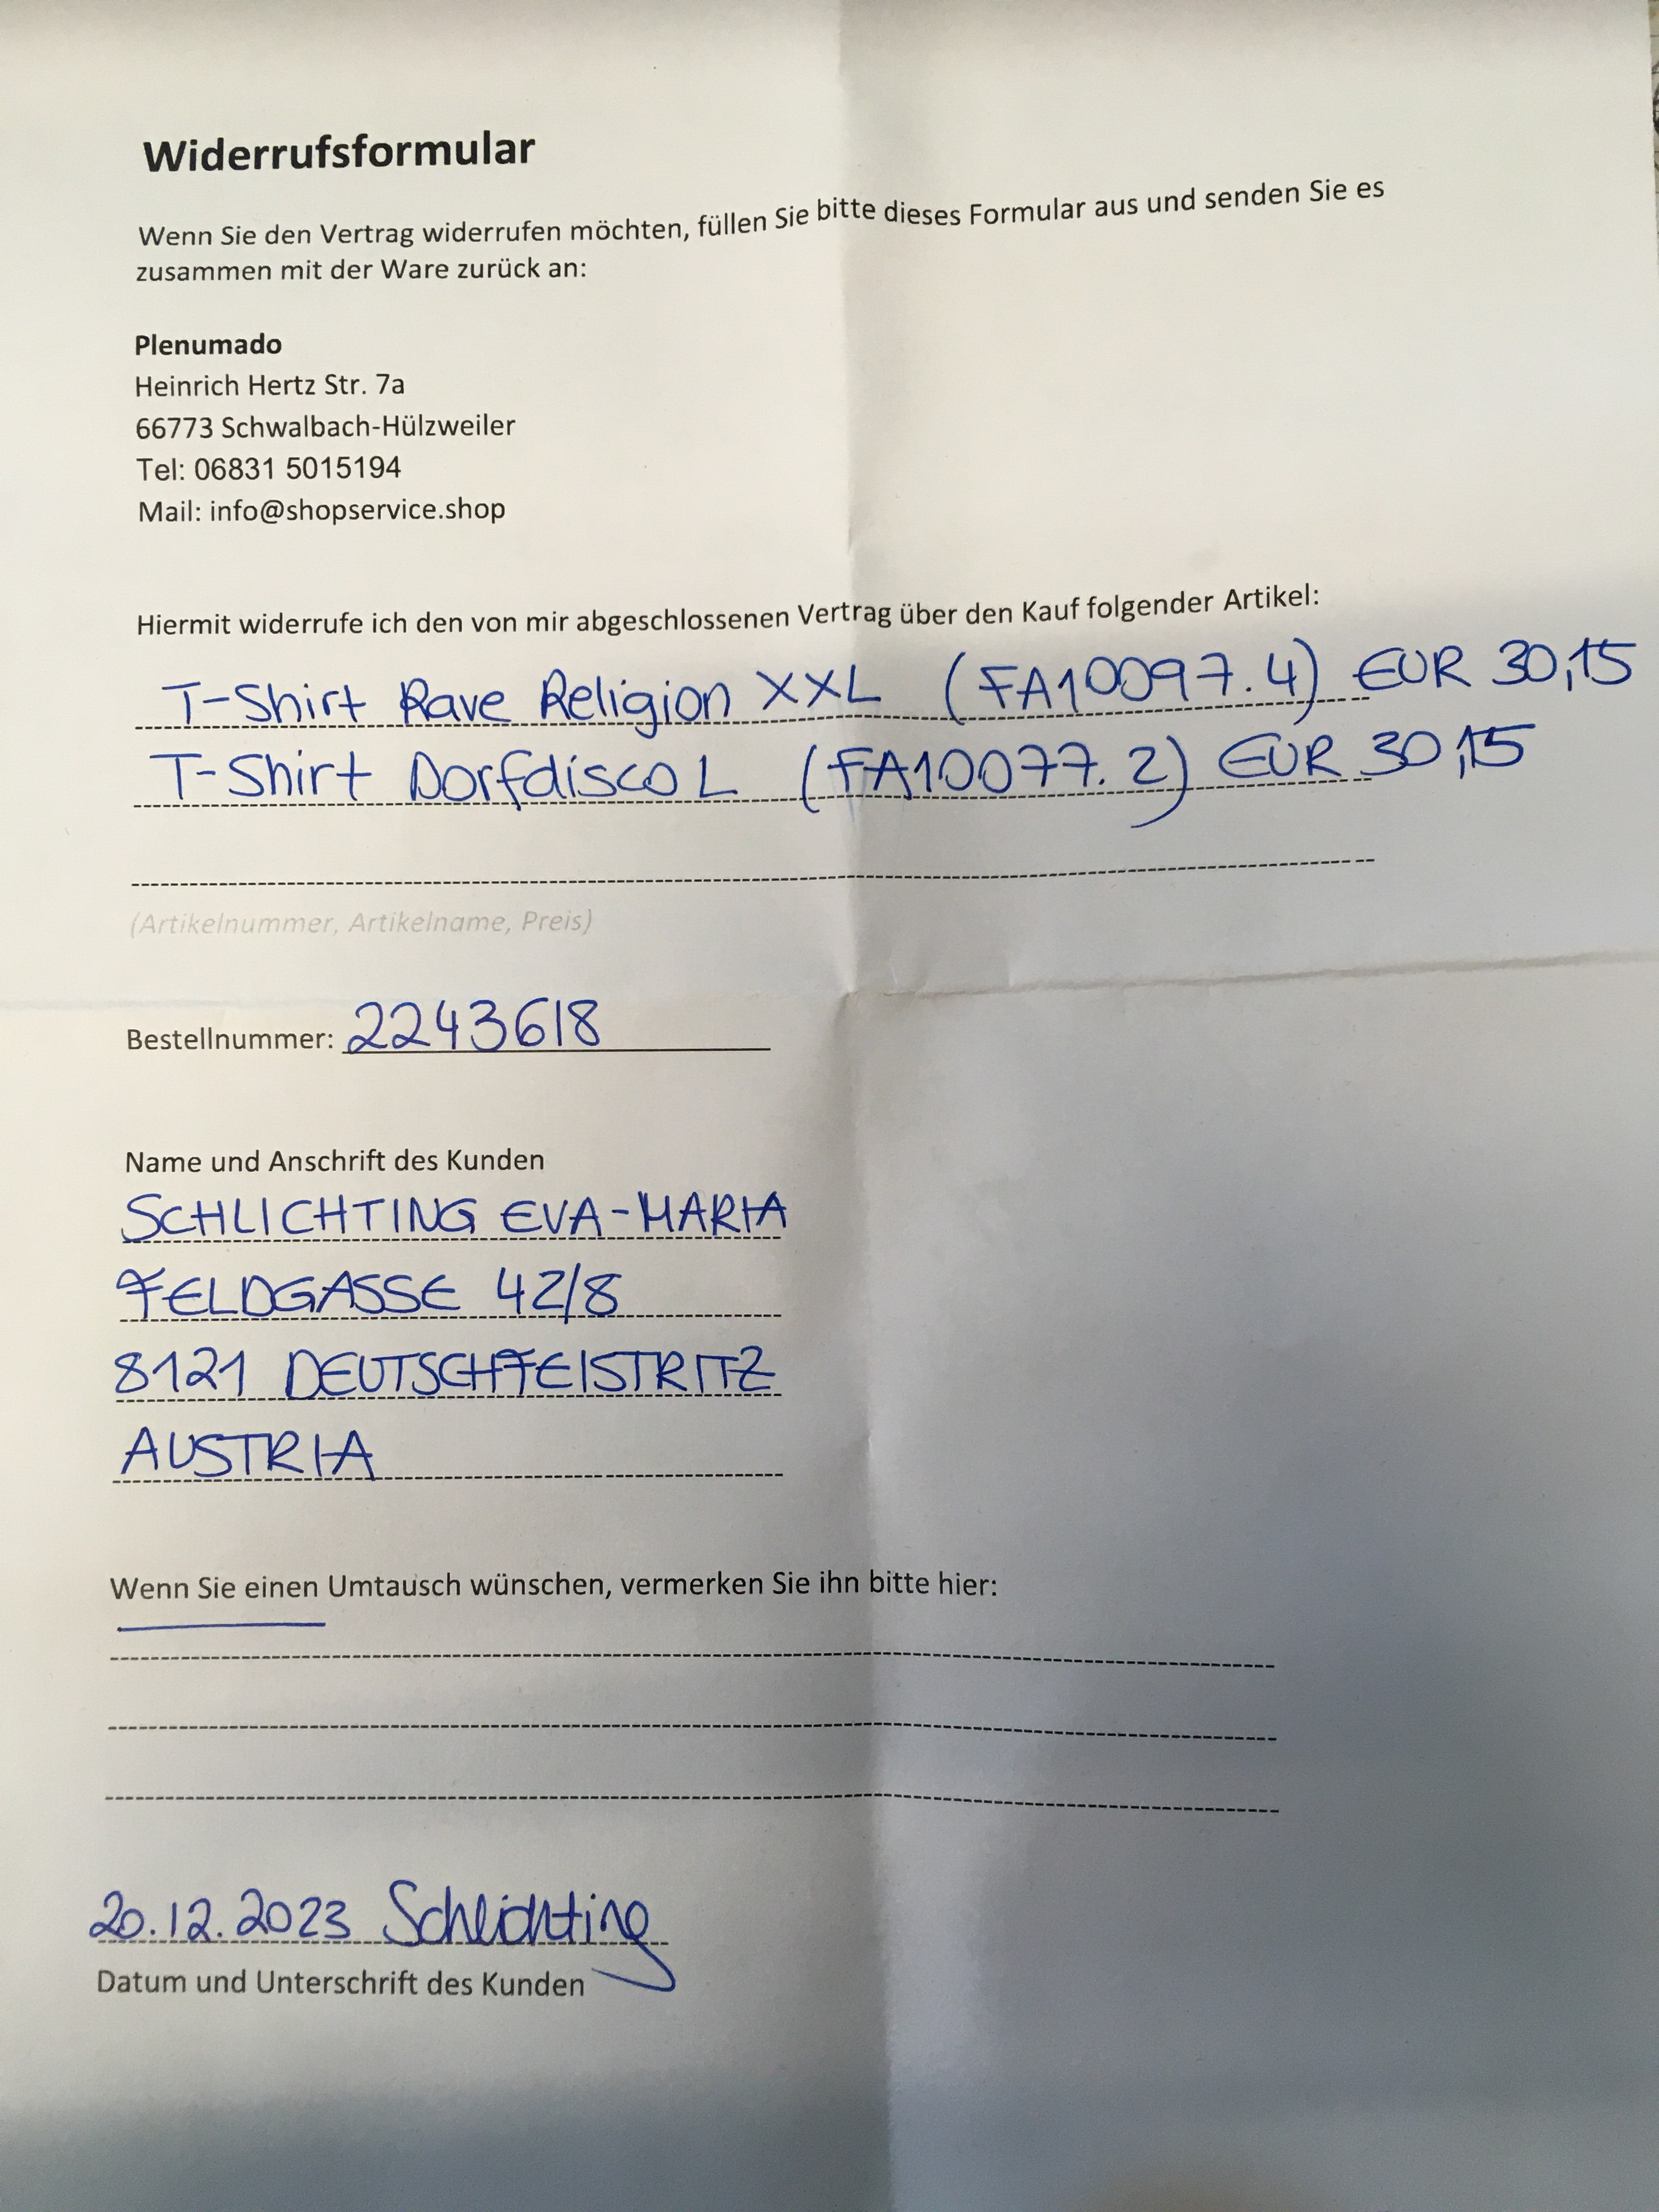 Widerrufsformular
Wenn Sie den Vertrag widerrufen möchten, füllen Sie bitte dieses Formular aus und senden Sie es
zusammen mit der Ware zurück an:
Plenumado
Heinrich Hertz Str. 7a
66773 Schwalbach-Hülzweiler
Tel: 06831 5015194
Mail: info@shopservice.shop
Hiermit widerrufe ich den von mir abgeschlossenen Vertrag über den Kauf folgender Artikel:
T-Shirt Rave Religion XXL (FA10097.4) EUR 30,15
T-Shirt Dorfdisco L (FA10077.2) EUR 30,15
(Artikelnummer, Artikelname, Preis)
Bestellnummer: 2243618
Name und Anschrift des Kunden
SCHLICHTING EVA-MARIA
FELDGASSE 42/8
8121 DEUTSCHFEISTRITZ
AUSTRIA
Wenn Sie einen Umtausch wünschen, vermerken Sie ihn bitte hier:
20.12.2023 Schlichting
Datum und Unterschrift des Kunden